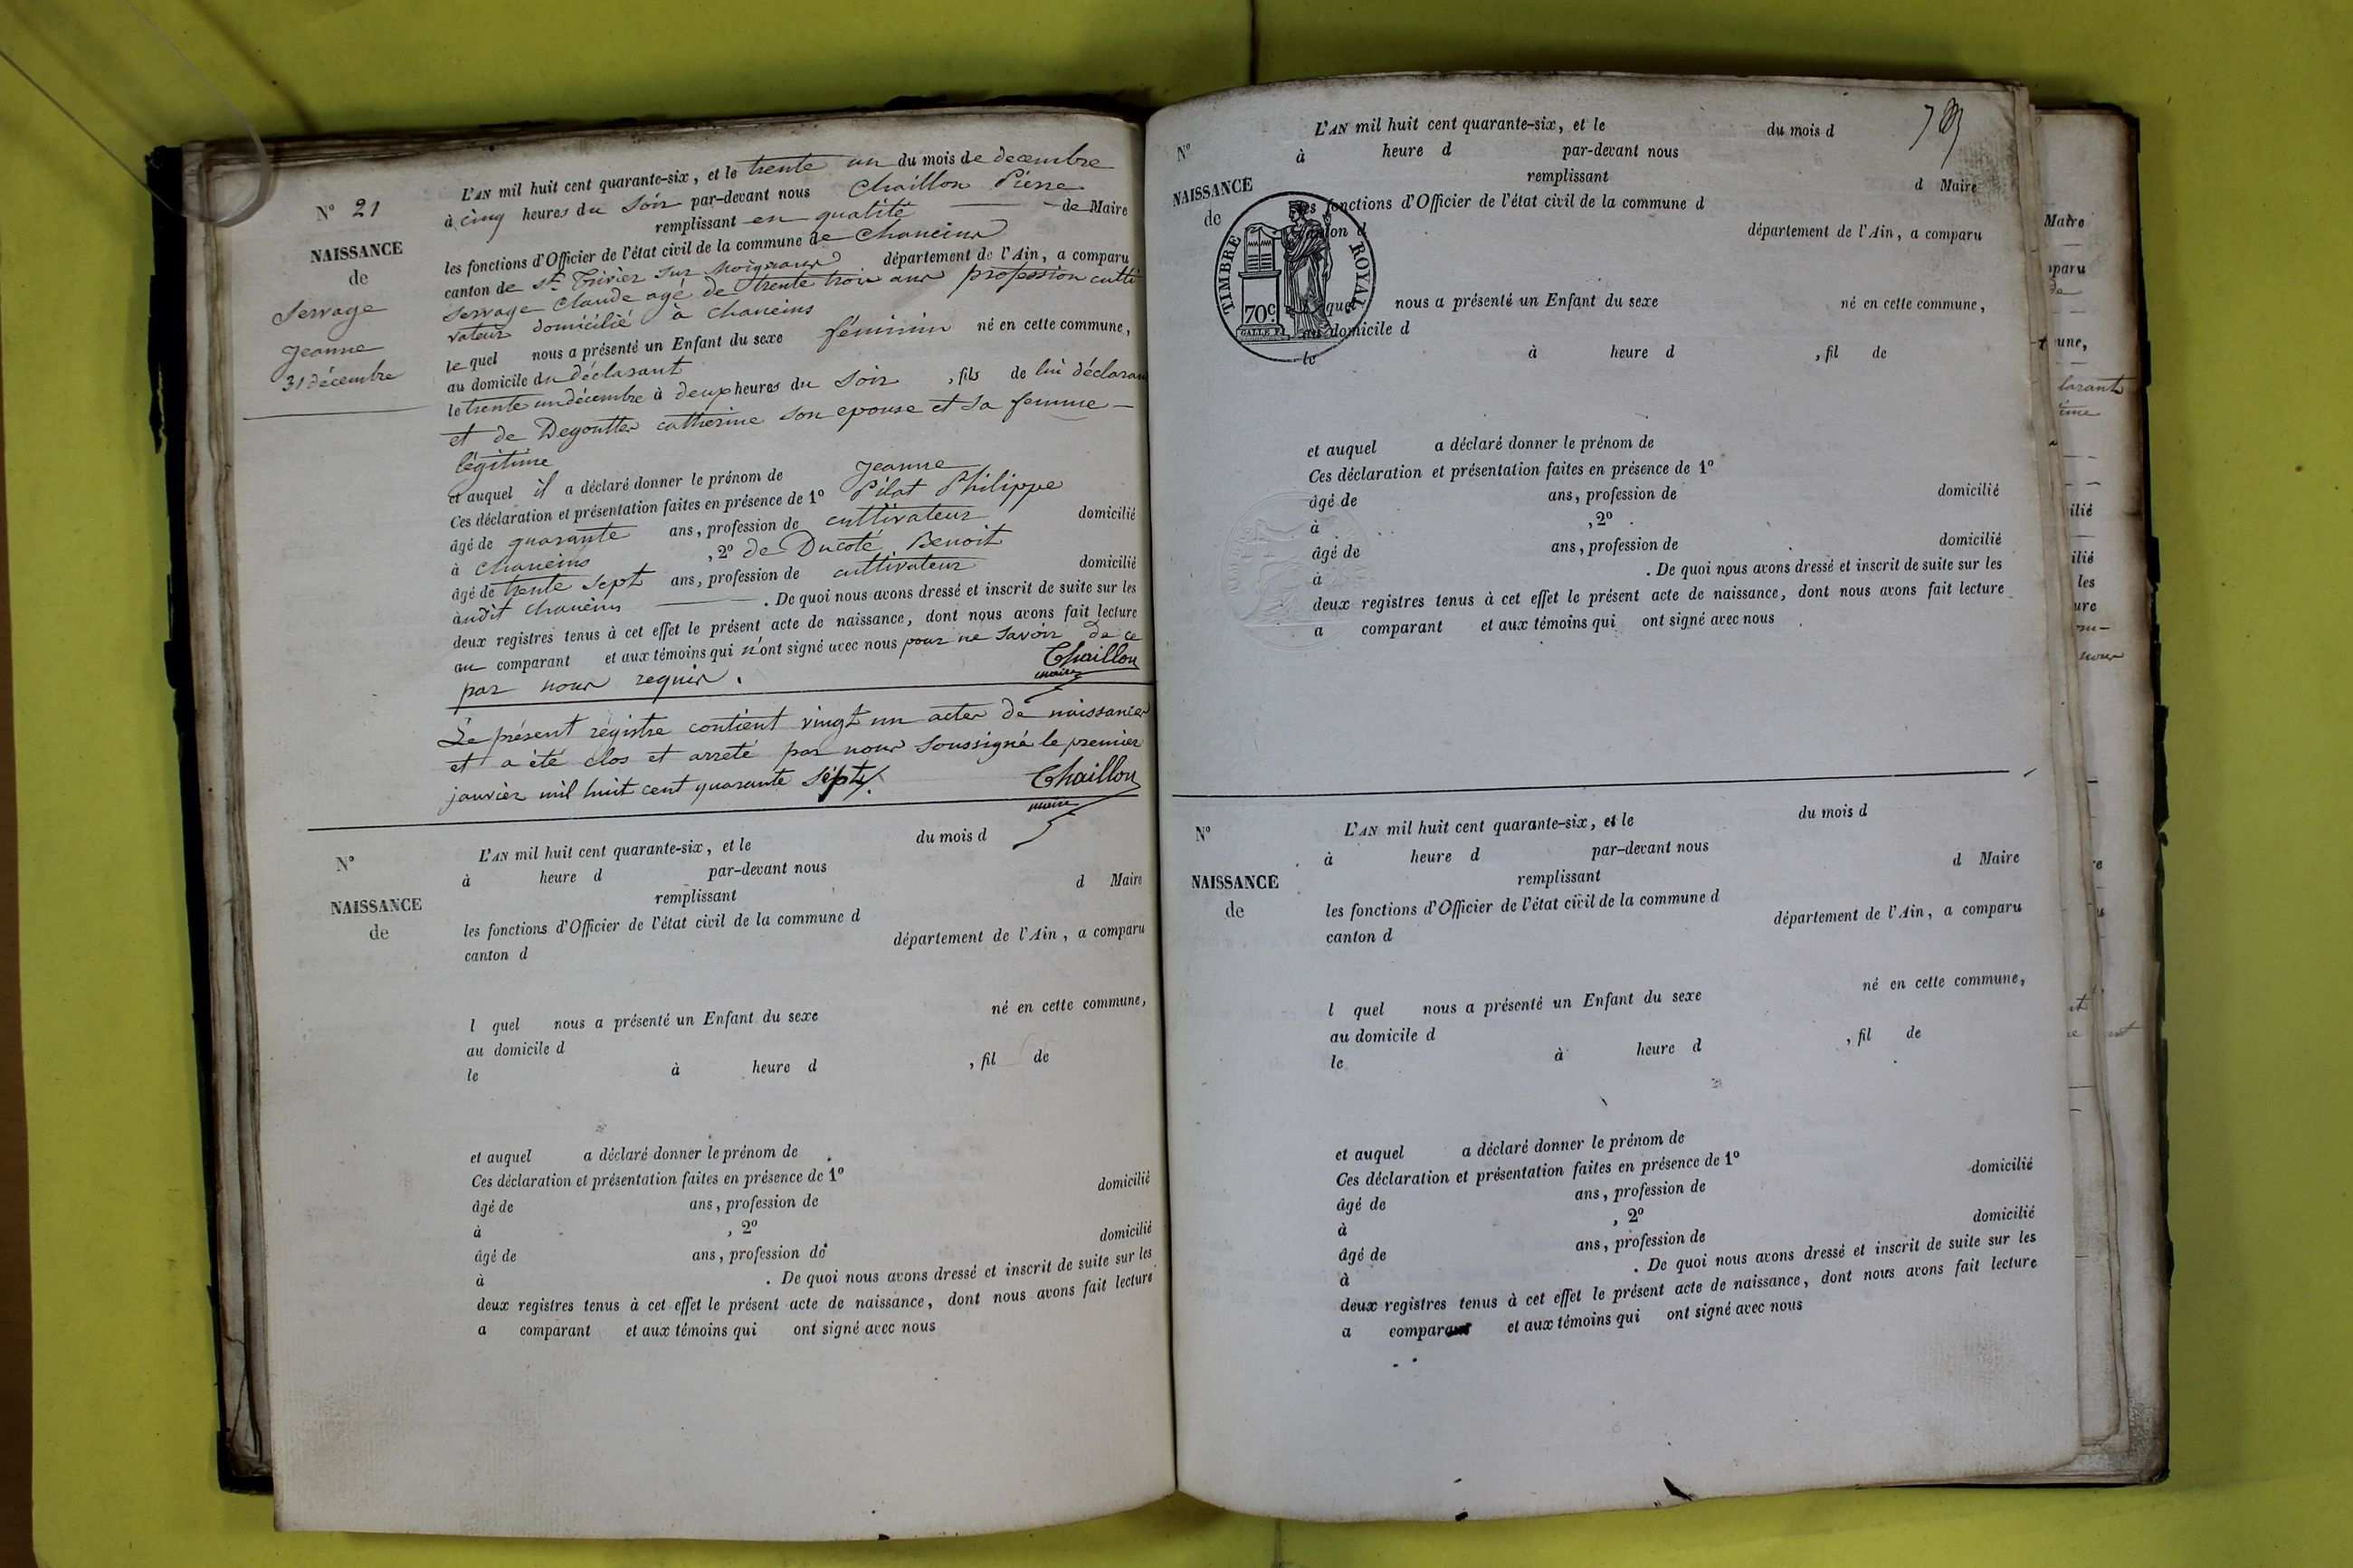 N° 21
NAISSANCE
de
Servage
Jeanne
31 décembre
L'AN mil huit cent quarante-six, et le trente un du mois de decembre
à cinq heures du soir par-devant nous Chaillon Pierre
remplissant en qualité de Maire
les fonctions d'Officier de l'état civil de la commune de Chaneins
canton de St Trivier sur Moignans département de l'Ain, a comparu
Servage Claude agé de trente trois ans profession culti
vateur domicilié à Chaneins
le quel nous a présenté un Enfant du sexe féminin né en cette commune,
au domicile du déclarant
le trente un décembre à deux heures du soir , fils de lui déclarant
et de Degoutter catherine son epouse et sa femme
légitime
et auquel il a déclaré donner le prénom de Jeanne
Ces déclaration et présentation faites en présence de 1° Pilat Philippe
âgé de quarante ans, profession de cultivateur domicilié
à Chaneins , 2° de Ducoté Benoit
âgé de trente sept ans, profession de cultivateur domicilié
àudit Chaneins . De quoi nous avons dressé et inscrit de suite sur les
deux registres tenus à cet effet le présent acte de naissance, dont nous avons fait lecture
au comparant et aux témoins qui n'ont signé avec nous pour ne savoir de ce
par nous requis.
Chaillon
maire
Le présent régistre contient vingt un actes de naissances
et a été clos et arreté par nous soussigné le premier
janvier mil huit cent quarante sept.
Chaillon
maire
N°
NAISSANCE
de
L'AN mil huit cent quarante-six, et le du mois d
à heure d par-devant nous
remplissant d Maire
les fonctions d'Officier de l'état civil de la commune d
canton d département de l'Ain, a comparu
l quel nous a présenté un Enfant du sexe né en cette commune,
au domicile d
le à heure d , fil de
et auquel a déclaré donner le prénom de
Ces déclaration et présentation faites en présence de 1°
âgé de ans, profession de domicilié
à , 2°
âgé de ans, profession de domicilié
à . De quoi nous avons dressé et inscrit de suite sur les
deux registres tenus à cet effet le présent acte de naissance, dont nous avons fait lecture
a comparant et aux témoins qui ont signé avec nous
N°
NAISSANCE
de
TIMBRE ROYAL
70c
L'AN mil huit cent quarante-six, et le du mois d
à heure d par-devant nous
remplissant d Maire
les fonctions d'Officier de l'état civil de la commune d
canton d département de l'Ain, a comparu
l quel nous a présenté un Enfant du sexe né en cette commune,
au domicile d
le à heure d , fil de
et auquel a déclaré donner le prénom de
Ces déclaration et présentation faites en présence de 1°
âgé de ans, profession de domicilié
à , 2°
âgé de ans, profession de domicilié
à . De quoi nous avons dressé et inscrit de suite sur les
deux registres tenus à cet effet le présent acte de naissance, dont nous avons fait lecture
a comparant et aux témoins qui ont signé avec nous
N°
NAISSANCE
de
L'AN mil huit cent quarante-six, et le du mois d
à heure d par-devant nous
remplissant d Maire
les fonctions d'Officier de l'état civil de la commune d
canton d département de l'Ain, a comparu
l quel nous a présenté un Enfant du sexe né en cette commune,
au domicile d
le à heure d , fil de
et auquel a déclaré donner le prénom de
Ces déclaration et présentation faites en présence de 1°
âgé de ans, profession de domicilié
à , 2°
âgé de ans, profession de domicilié
à . De quoi nous avons dressé et inscrit de suite sur les
deux registres tenus à cet effet le présent acte de naissance, dont nous avons fait lecture
a comparant et aux témoins qui ont signé avec nous